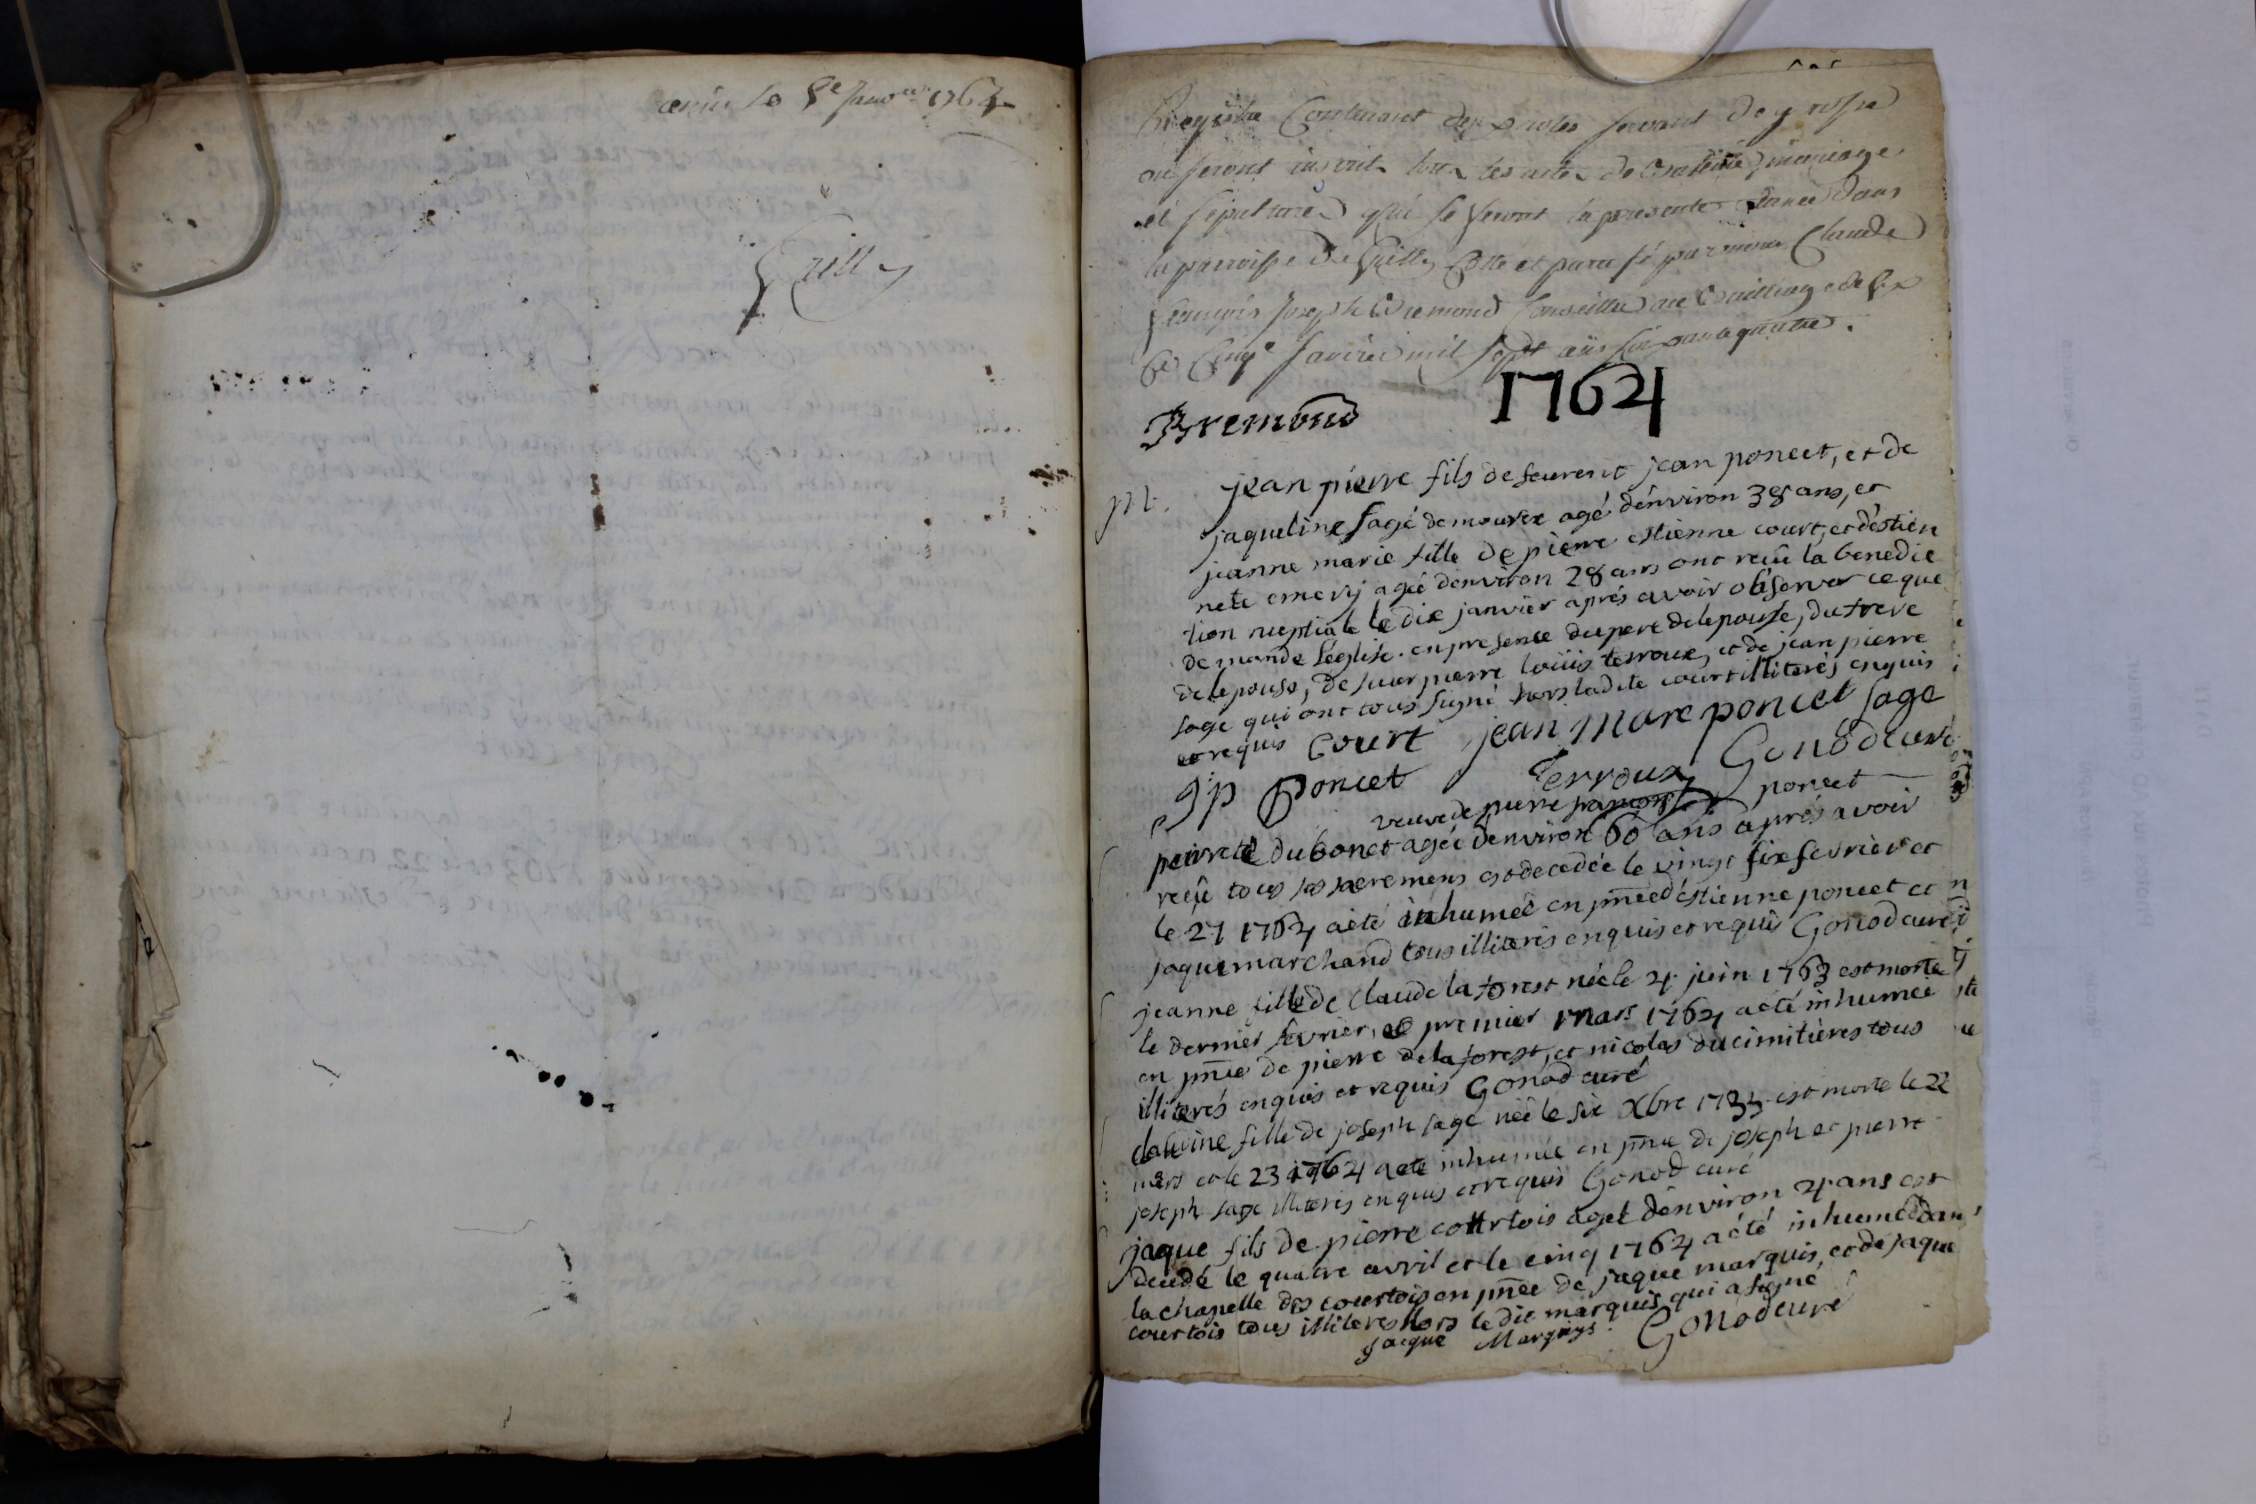 le 5e Janvier 1764
Registre Contenant des rolles servant de grosse
ou seront inscrit tous les actes de mariage
et sepulture qui se feront la presente année dans
la parroisse de Cotte et paraffé par nous Claude
françois Joseph Bremond Conseiller au Bailliage de Gex
Ce Cinqe Janvier mil sept cens soixante quatre.
1764
Bremond
m. jean pierre fils de feurent jean poncet, et de
jaqueline sage demourex agé d'environ 38 ans, et
jeanne marie fille de pierre estienne court, et d'estien
nete emery agée d'environ 28 ans ont reçû la benedic
tion nuptiale le dix janvier aprés avoir observer ce que
demande l'église. en presence du pere de lepouse, du frere
de lepouse, de pierre loüis terroux, et de jean pierre
sage qui ont tous signé hors ladite court illiterés enquis
et requis Court jean marc poncet sage
J p Poncet Terroux Gonod curé
veuve de pierre françois poncet
peirrete dubonet agée d'environ 60 ans aprés avoir
reçû tous ses sacremens est decedée le vingt six fevrier et
le 27 1764 a été inhumée en pnce d'éstienne poncet et
jaque marchand tous illiteris enquis et requis Gonod curé
jeanne fille de Claude la forest née le 4 juin 1763 est morte
le dernier fevrier, et premier mars 1764 a été inhumée
en pnce de pierre de la forest, et nicolas ducimitières tous
illiterés enquis et requis Gonod curé
fille de joseph sage née le six Xbre 1733 est morte le 22
mars et le 23 1764 a été inhumée en pnce de joseph et pierre
joseph sage illiterés enquis et requis Gonod curé
jaque fils de pierre courtois aget d'environ 4 ans est
decedé le quatre avril et le cinq 1764 a été inhumé dans
la chapelle des courtois en pnce de jaque marquis, et de jaque
courtois tous illiteres hors ledit marquis qui a signé
Jacque Marquis Gonod curé